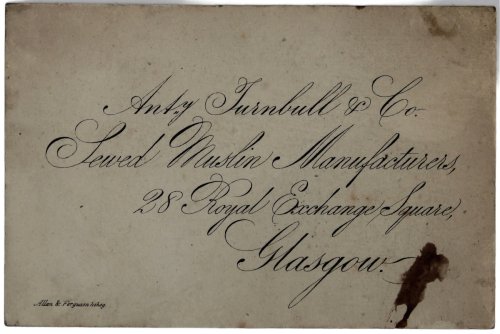 Anty Turnbull & Co.
Sewed Muslin Manufacturers,
28 Royal Exchange Square,
Glasgow.
Allan & Ferguson lithog.